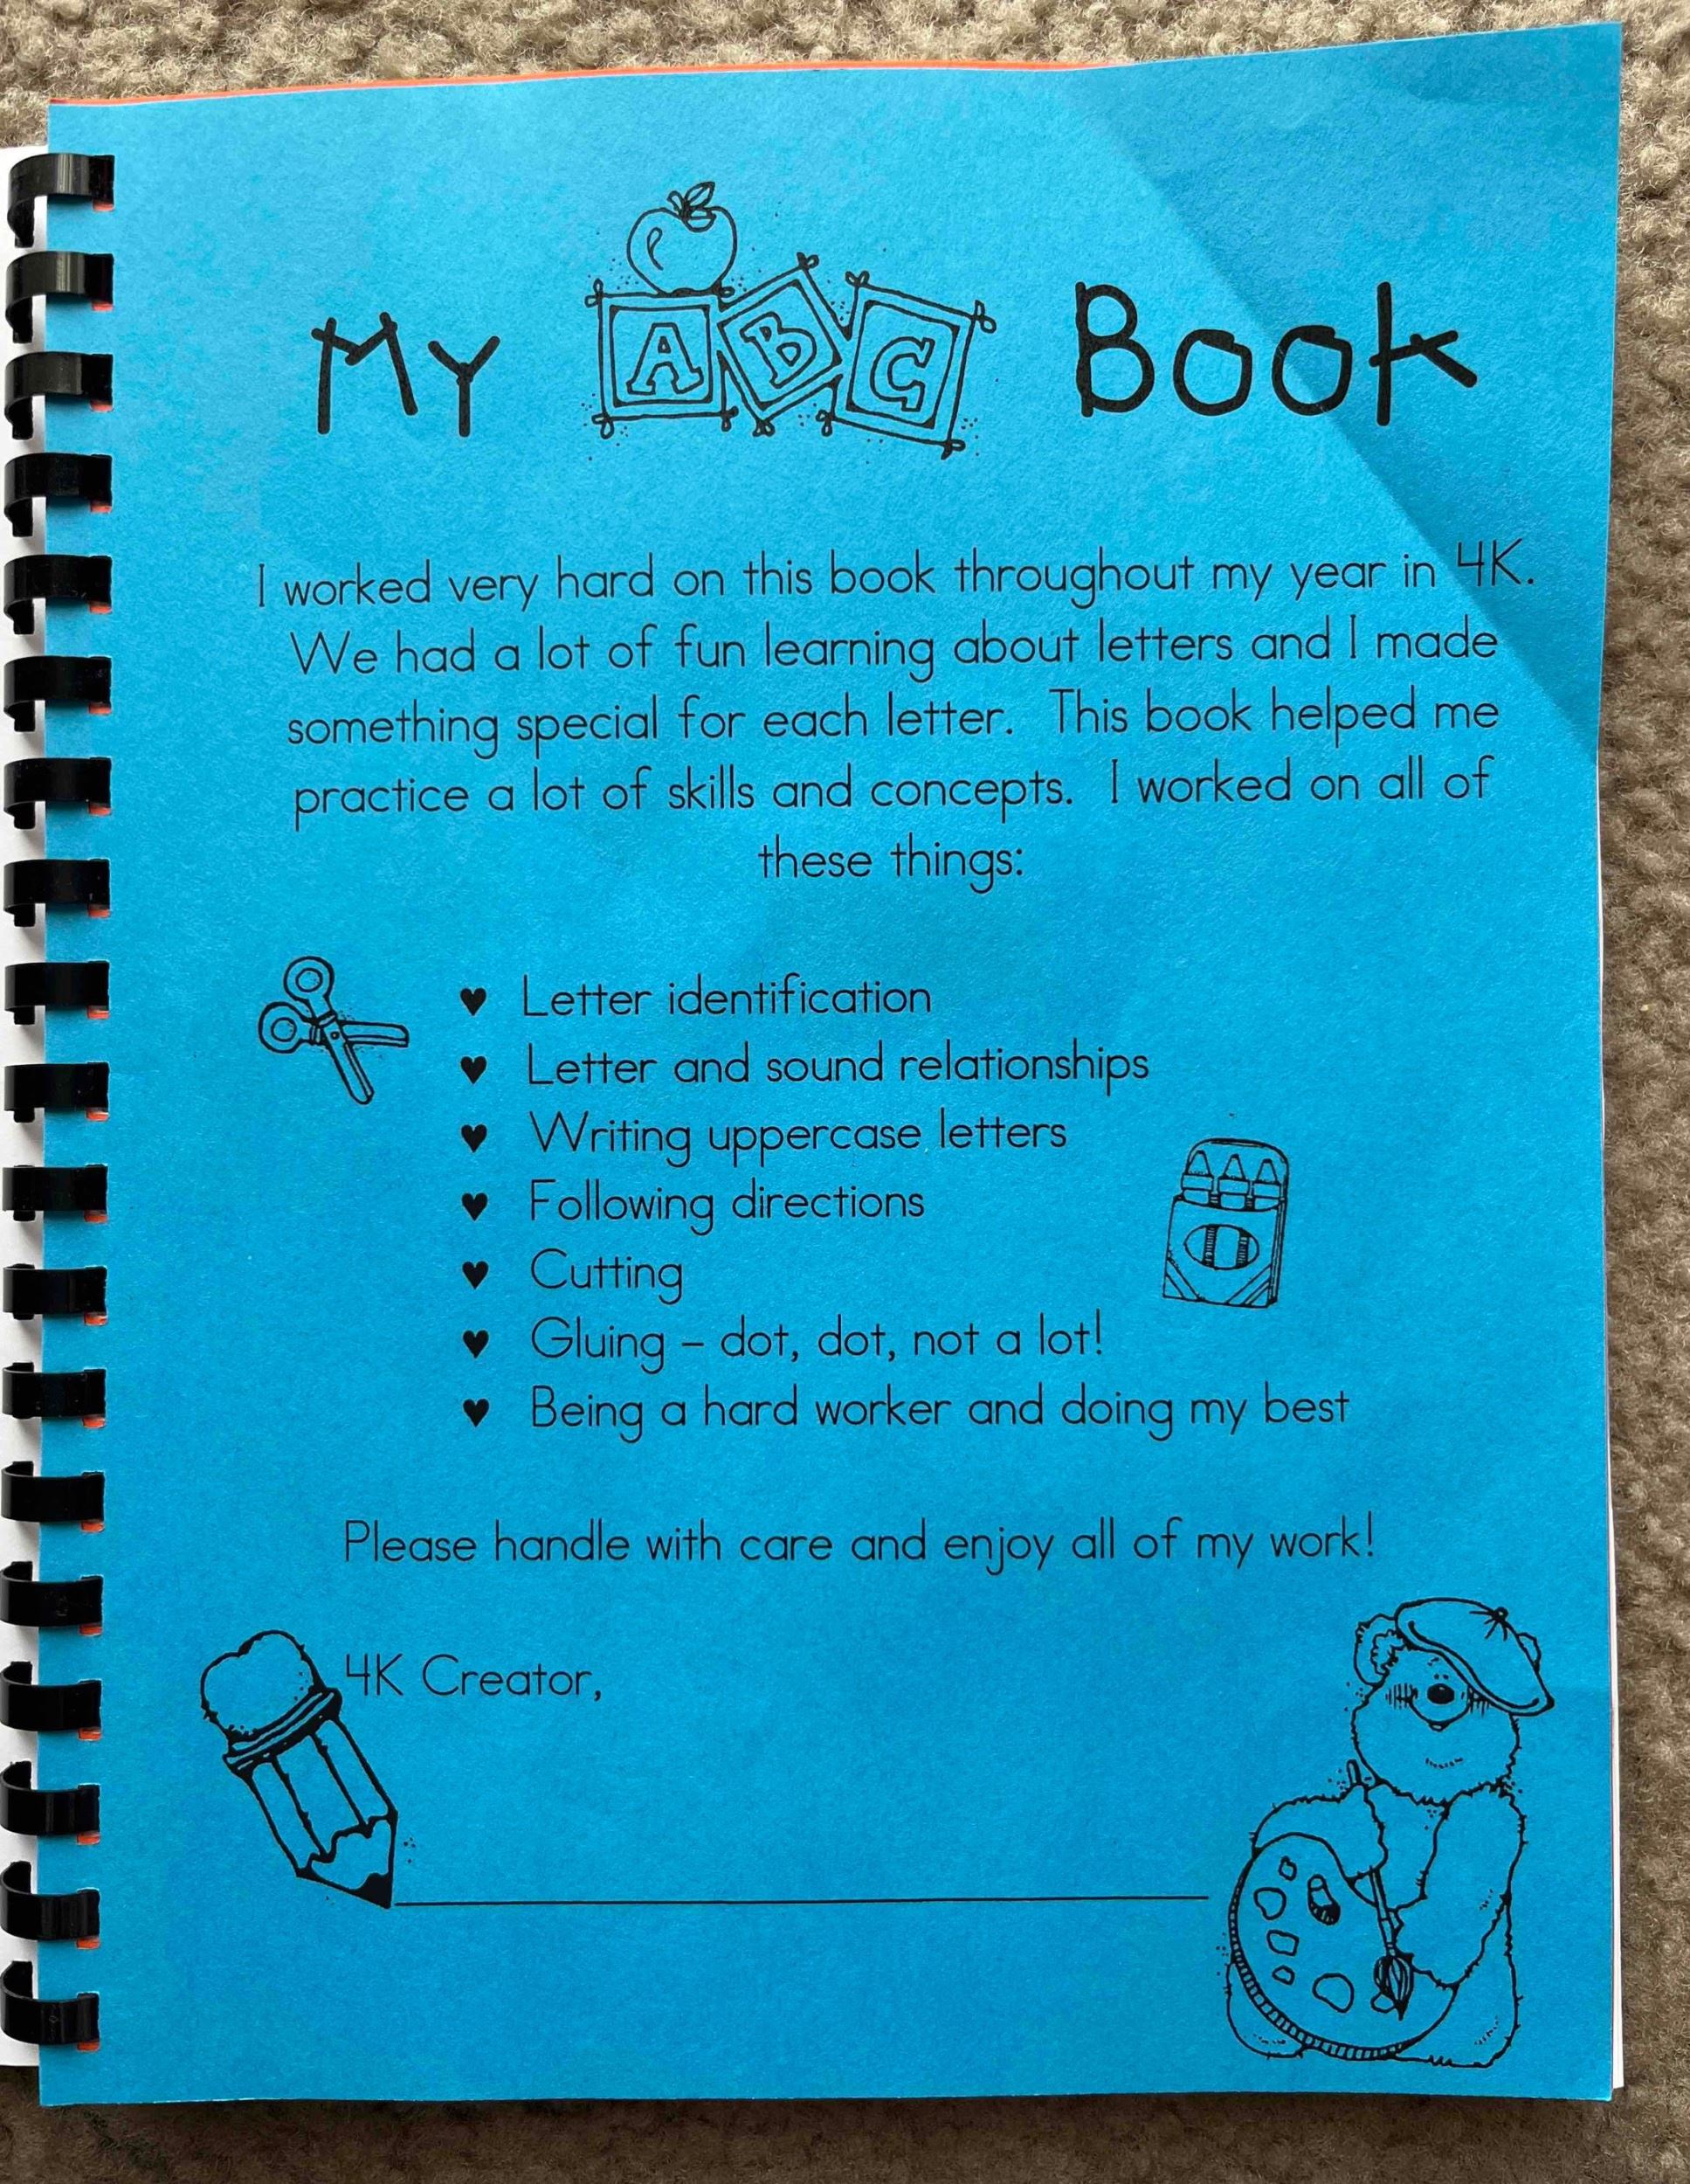 My ABC Book
I worked very hard on this book throughout my year in 4K.
We had a lot of fun learning about letters and I made
something special for each letter. This book helped me
practice a lot of skills and concepts. I worked on all of
these things:
♥ Letter identification
♥ Letter and sound relationships
♥ Writing uppercase letters
♥ Following directions
♥ Cutting
♥ Gluing – dot, dot, not a lot!
♥ Being a hard worker and doing my best
Please handle with care and enjoy all of my work!
4K Creator,